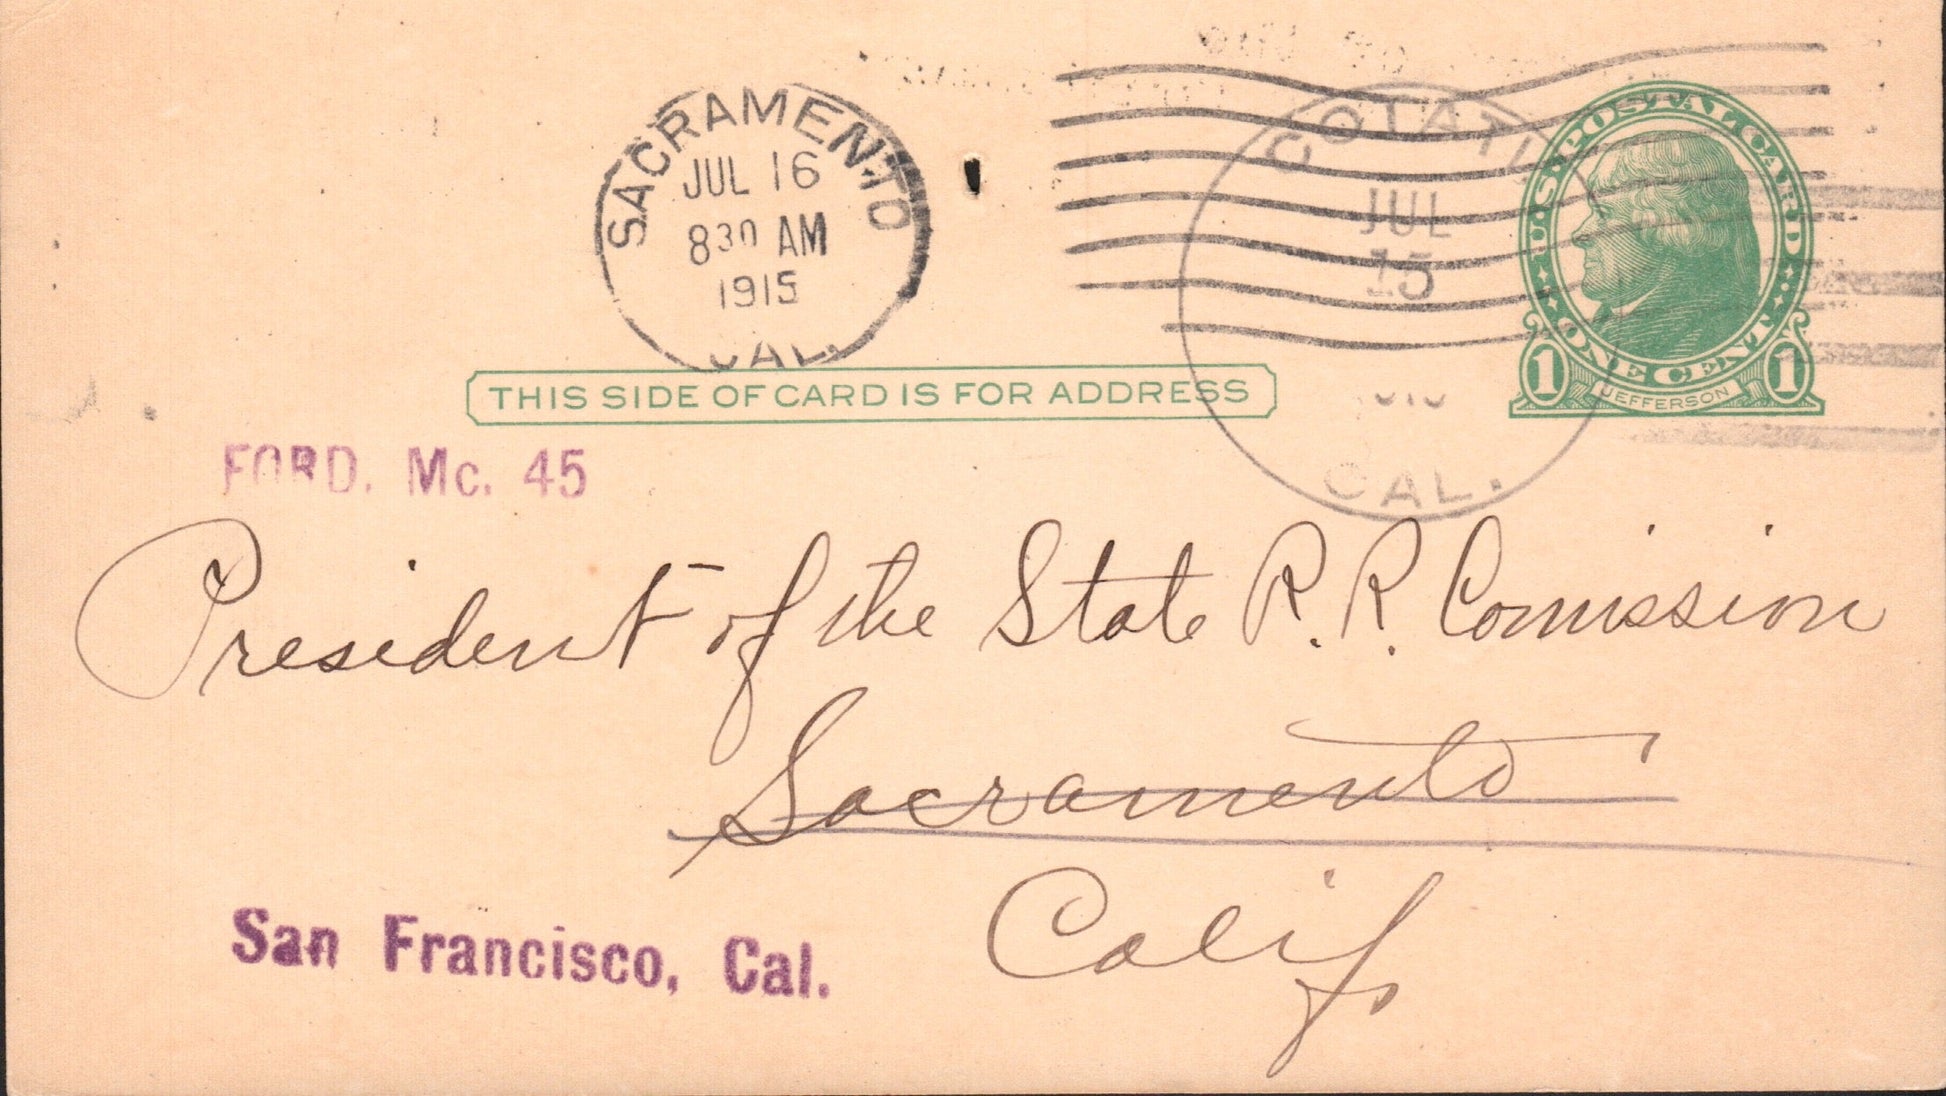 SACRAMENTO
JUL 16
830 AM
1915
CAL.
COTATI
JUL
15
CAL.
U.S. POSTAL CARD
ONE CENT
1 JEFFERSON 1
THIS SIDE OF CARD IS FOR ADDRESS
FORD. Mc. 45
President of the State R.R. Comission
Sacramento
Calif
San Francisco, Cal.